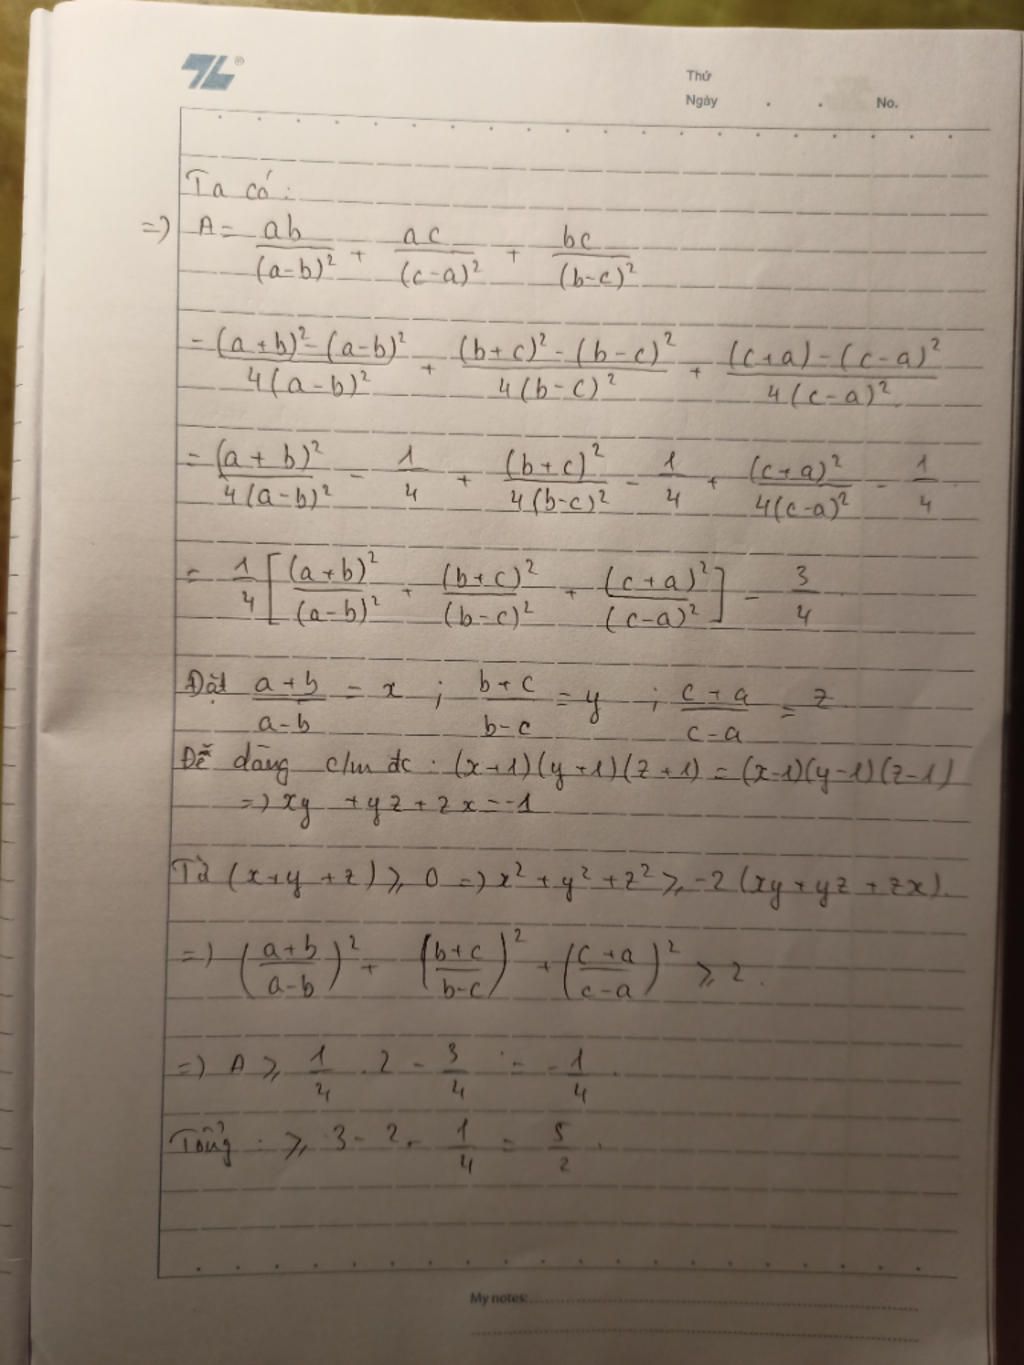 Thứ
Ngày . . No.
Ta có :
=> A = ab/(a-b)² + ac/(c-a)² + bc/(b-c)²
= ((a+b)² - (a-b)²)/(4(a-b)²) + ((b+c)² - (b-c)²)/(4(b-c)²) + ((c+a) - (c-a)²)/(4(c-a)²)
= (a+b)²/(4(a-b)²) - 1/4 + (b+c)²/(4(b-c)²) - 1/4 + (c+a)²/(4(c-a)²) - 1/4
= 1/4 [(a+b)²/(a-b)² + (b+c)²/(b-c)² + (c+a)²/(c-a)²] - 3/4
Đặt (a+b)/(a-b) = x ; (b+c)/(b-c) = y ; (c+a)/(c-a) = z
Dễ dàng c/m đc : (x+1)(y+1)(z+1) = (x-1)(y-1)(z-1)
=> xy + yz + zx = -1
Từ (x+y+z) ⩾ 0 => x² + y² + z² ⩾ -2(xy+yz+zx).
=> ((a+b)/(a-b))² + ((b+c)/(b-c))² + ((c+a)/(c-a))² ⩾ 2.
=> A ⩾ 1/4 . 2 - 3/4 = -1/4.
Tổng : ⩾ 3 - 2. 1/4 = 5/2.
My notes: